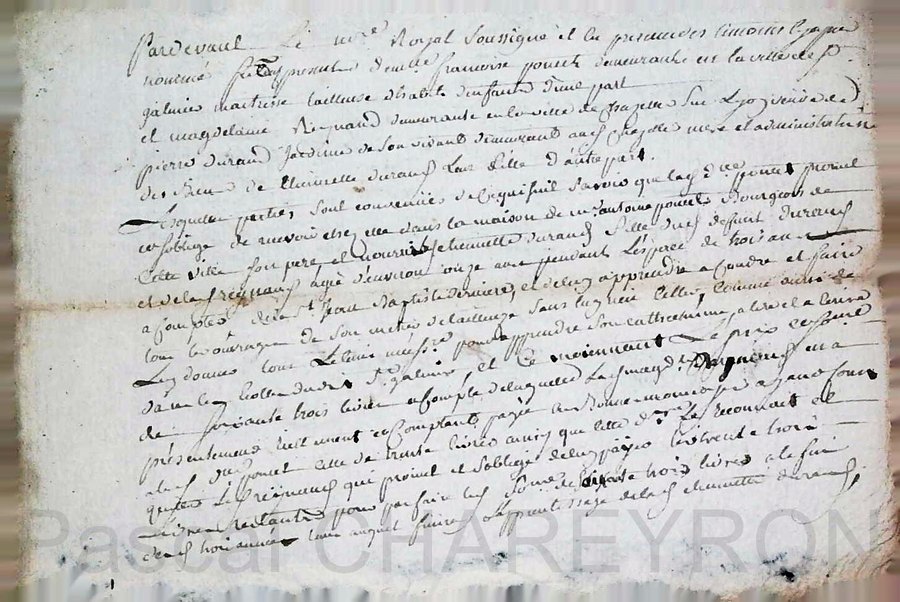 Pardevant Le nore Royal Soussigné et en presence des temoins Cyapres
nommés fut presente demlle francoise poncet demeurante en la ville de St
galmier maitresse tailleuse d'habits d'enfants d'une part
et magdelaine Reynaud demeurante en la ville de Chazelle Sur Lyon veuve de
pierre durand Jardinier de Son vivant demeurant aud Chazelle mere et administratrice
des biens de Etiennette durand Leur fille d'autre part.
Lesquelles parties Sont convenues de Ce qui Suit Savoir que lad dlle poncet promet
et Soblige de recevoir chez elle dans la maison de mr antoine poncet Bourgeois de
Cette ville Son pere et nourrir Etiennette durand fille dud deffunt durand
et de la Reynaud agée d'environ onze ans pendant L'espace de trois ans
a Compter de la St Jean Baptiste derniere, et de luy apprendre a Coudre et faire
tous les ouvrages de Son metier de tailleuse Sans luy rien Celler, Comme aussi de
Luy donner tout Le tems necessre pour apprendre Son cathechisme, a lire et a Ecrire
dans les Ecolles dud St galmier, et Ce moiennant Le prix et Somme
de Soixante trois livres a Compte de laquelle La magdne Reynaud a
presentement reellement et Comptant payé en Bonne monoye ayant Cours
a lad dlle poncet Celle de trente livres ainsy que lad dlle Le reconnoit et
quitte La Reynaud qui promet et Soblige de luy payer les trente trois
Livres restantes pour parfaire lad Somme de Soixante trois livres a la fin
desd trois années tems auquel finira l'apprentissage de lad Etiennette durand,
Pascal CHAREYRON